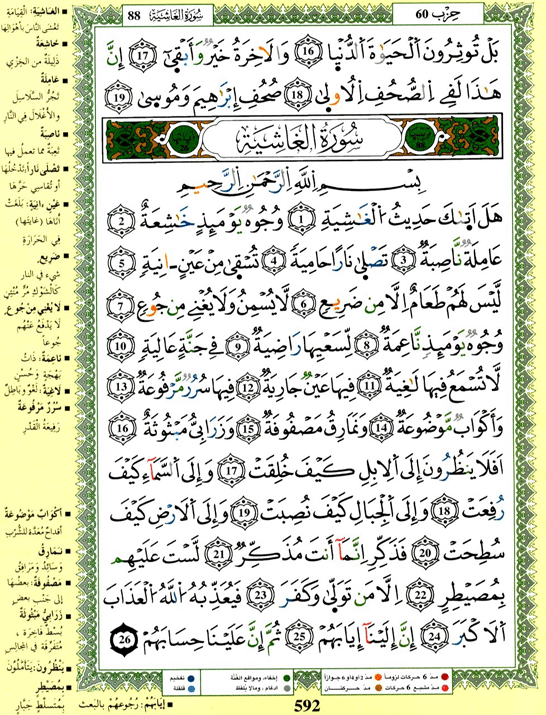 حِزْب 60
سُورَةُ الغَاشِيَة
88
بَلْ تُوثِرُونَ اَلْحَيَوٰةَ اَلدُّنْيَا (16) وَالَاخِرَةُ خَيْرٌ وَأَبْقَىٰٓ (17) إِنَّ
هَٰذَا لَفِے اِلصُّحُفِ اِلُاولَىٰ (18) صُحُفِ إِبْرَٰهِيمَ وَمُوسَىٰ (19)
سُورَةُ الْغَاشِيَة
بِسْمِ اِللَّهِ اِلرَّحْمَٰنِ اِلرَّحِيمِ
هَلَ اَتَيٰكَ حَدِيثُ اُلْغَٰشِيَةِ (1) وُجُوهٌ يَوْمَئِذٍ خَٰشِعَةٌ (2)
عَامِلَةٌ نَّاصِبَةٌ (3) تَصْلَىٰ نَاراً حَامِيَةً (4) تُسْقَىٰ مِنْ عَيْنٍ اٰنِيَةٍ (5)
لَّيْسَ لَهُمْ طَعَامٌ اِلَّا مِن ضَرِيعٍ (6) لَّا يُسْمِنُ وَلَا يُغْنِے مِن جُوعٍ (7)
وُجُوهٌ يَوْمَئِذٍ نَّاعِمَةٌ (8) لِّسَعْيِهَا رَاضِيَةٌ (9) فِے جَنَّةٍ عَالِيَةٍ (10)
لَّا تُسْمَعُ فِيهَا لَٰغِيَةٌ (11) فِيهَا عَيْنٌ جَارِيَةٌ (12) فِيهَا سُرُرٌ مَّرْفُوعَةٌ (13)
وَأَكْوَابٌ مَّوْضُوعَةٌ (14) وَنَمَارِقُ مَصْفُوفَةٌ (15) وَزَرَابِيُّ مَبْثُوثَةٌ (16)
اَفَلَا يَنظُرُونَ إِلَى اَلِابِلِ كَيْفَ خُلِقَتْ (17) وَإِلَى اَلسَّمَآءِ كَيْفَ
رُفِعَتْ (18) وَإِلَى اَلْجِبَالِ كَيْفَ نُصِبَتْ (19) وَإِلَى اَلَارْضِ كَيْفَ
سُطِحَتْ (20) فَذَكِّرِ اِنَّمَآ أَنتَ مُذَكِّرٌ (21) لَّسْتَ عَلَيْهِم
بِمُصَيْطِرٍ (22) اِلَّا مَن تَوَلَّىٰ وَكَفَرَ (23) فَيُعَذِّبُهُ اُللَّهُ اُلْعَذَابَ
اَلَاكْبَرَ (24) إِنَّ إِلَيْنَآ إِيَابَهُمْ (25) ثُمَّ إِنَّ عَلَيْنَا حِسَابَهُمْ (26)
■ الْغَاشِيَة: الْقِيَامَةِ
تَغْشَى النَّاسَ بِأَهْوَالِهَا
■ خَاشِعَة:
ذَلِيلَةٌ مِنَ الْخِزْيِ
■ عَامِلَة:
تَجُرُّ السَّلَاسِلَ
وَالأَغْلَالَ فِي النَّارِ
■ نَاصِبَة:
تَعِبَةٌ مِمَّا تَعْمَلُ فِيهَا
■ تَصْلَى نَاراً: تَدْخُلُهَا
أَوْ تُقَاسِي حَرَّهَا
■ عَيْنٍ ءَانِيَة: بَلَغَتْ
أَنَاهَا (غَايَتَهَا)
فِي الْحَرَارَةِ
■ ضَرِيع:
شَيْءٌ فِي النَّارِ
كَالشَّوْكِ مُرٌّ مُنْتِنٌ
■ لَا يُغْنِي مِنْ جُوع:
لَا يَدْفَعُ عَنْهُمْ
جُوعاً
■ نَاعِمَة: ذَاتُ
بَهْجَةٍ وَحُسْنٍ
■ لَاغِيَة: لَغْوٌ وَبَاطِلٌ
■ سُرُرٌ مَرْفُوعَة:
رَفِيعَةُ الْقَدْرِ
■ أَكْوَابٌ مَوْضُوعَة:
أَقْدَاحٌ مُعَدَّةٌ لِلشُّرْبِ
■ نَمَارِق:
وَسَائِدُ وَمَرَافِقُ
■ مَصْفُوفَة: بَعْضُهَا
إِلَى جَنْبِ بَعْضٍ
■ زَرَابِيُّ مَبْثُوثَة:
بُسُطٌ فَاخِرَةٌ،
مُتَفَرِّقَةٌ فِي الْمَجَالِسِ
■ يَنْظُرُونَ: يَتَأَمَّلُونَ
■ بِمُصَيْطِر:
بِمُتَسَلِّطٍ جَبَّارٍ
■ إِيَابَهُمْ: رُجُوعَهُمْ بِالْبَعْثِ
مدّ 6 حركات لزوماً
مدّ 2 أو 4 أو 6 جوازاً
مدّ مشبع 6 حركات
مدّ حركتان
إخفاء، ومواقع الغُنَّة
ادغام، ومالا يُلفَظ
تفخيم
قلقلة
592